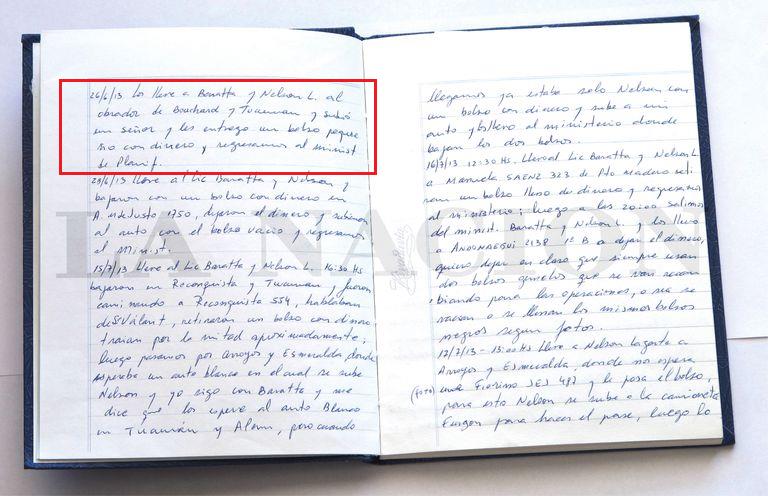 26/6/13 Los lleve a Baratta y Nelson L. al
obrador de Bouchard y Tucuman y subió
un señor y les entrego un bolso peque
ño con dinero y regresamos al minist
de Planif.
28/6/13 lleve al Lic Baratta y Nelson y
bajaron con un bolso con dinero en
A. M de Justo 1750, dejaron el dinero y subimos
al auto con el bolso vacio y regresamos
al Minist.
15/7/13 lleve al Lic Baratta y Nelson L. 16:30 HS
bajaron en Reconquista y Tucuman y fueron
caminando a Reconquista 554, hablaban
de Sr Valant, retiraron un bolso con dinero
traian por la mitad aproximadamente;
luego pasamos por Arroyo y Esmeralda donde
esperaba un auto blanco en el cual se sube
Nelson y yo sigo con Baratta y me
dice que los espere al auto Blanco
en Tucumán y Alem, pero cuando
llegamos ya estaba solo Nelson con
un bolso con dinero y sube a mi
auto y al ministerio donde
bajan los dos bolsos.
16/7/13 12:30 HS. lleve al Lic Baratta y Nelson L.
a Manuela SAENZ 323 de Pto Madero reti
raron un bolso lleno de dinero y regresamos
al ministerio; luego a las 20:00 salimos
del minist. Baratta y Nelson L. y los llevo
a 2138 1º B a dejar el dinero,
quiero dejar en claro que siempre usan
dos bolsos que se van
biando para las operaciones, o sea se
vacian o se llenan los mismos bolsos
negros segun fotos.
17/7/13 - 15:00 HS lleve a Nelson hasta
Arroyo y Esmeralda, donde nos espera
(FOTO) una Fiorino JEJ 497 y le pasa el bolso,
para esto Nelson se sube a la camioneta
Furgon para hacer el pase, luego lo
LA NACION